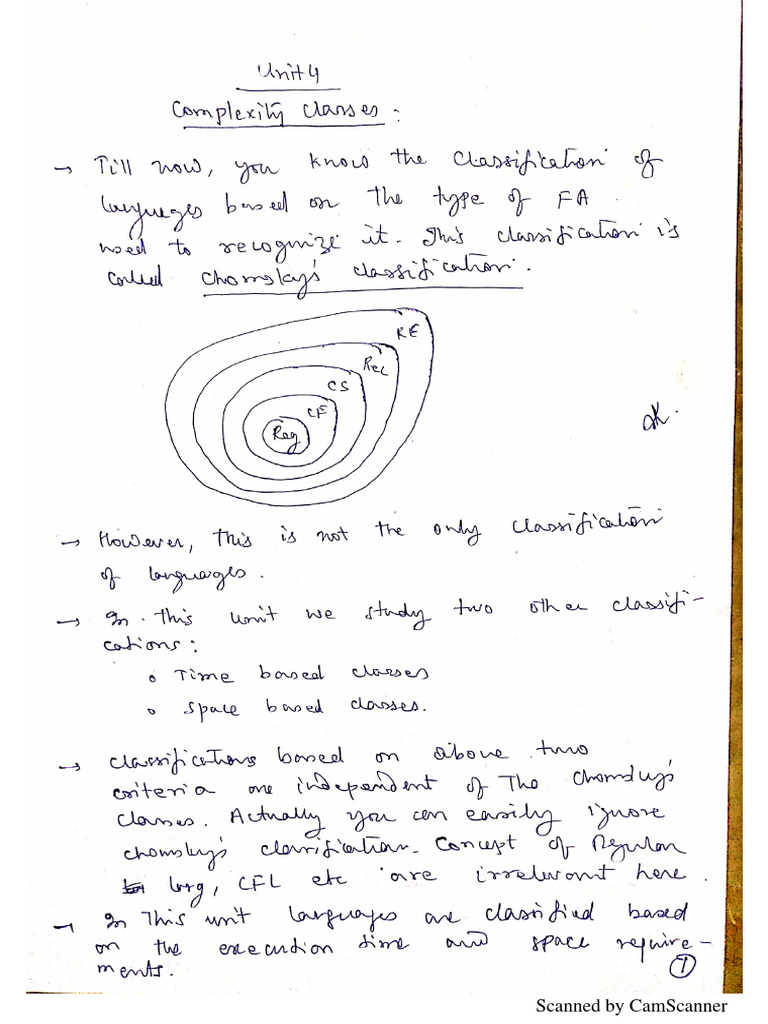 Unit 4
Complexity classes :
→ Till now, you know the classification of
languages based on the type of FA.
used to recognize it. This classification is
called Chomsky's classification.
RE
Rec
CS
CF
Reg
→ However, this is not the only classification
of languages.
→ In this unit we study two other classifi-
cations :
o Time based classes
o Space based classes.
→ Classifications based on above two
criteria are independent of The Chomsky's
classes. Actually you can easily ignore
chomsky's classification. Concept of Regular
lang, CFL etc are irrelevant here.
→ In This unit languages are classified based
on the execution time and space require-
ments.
1
Scanned by CamScanner